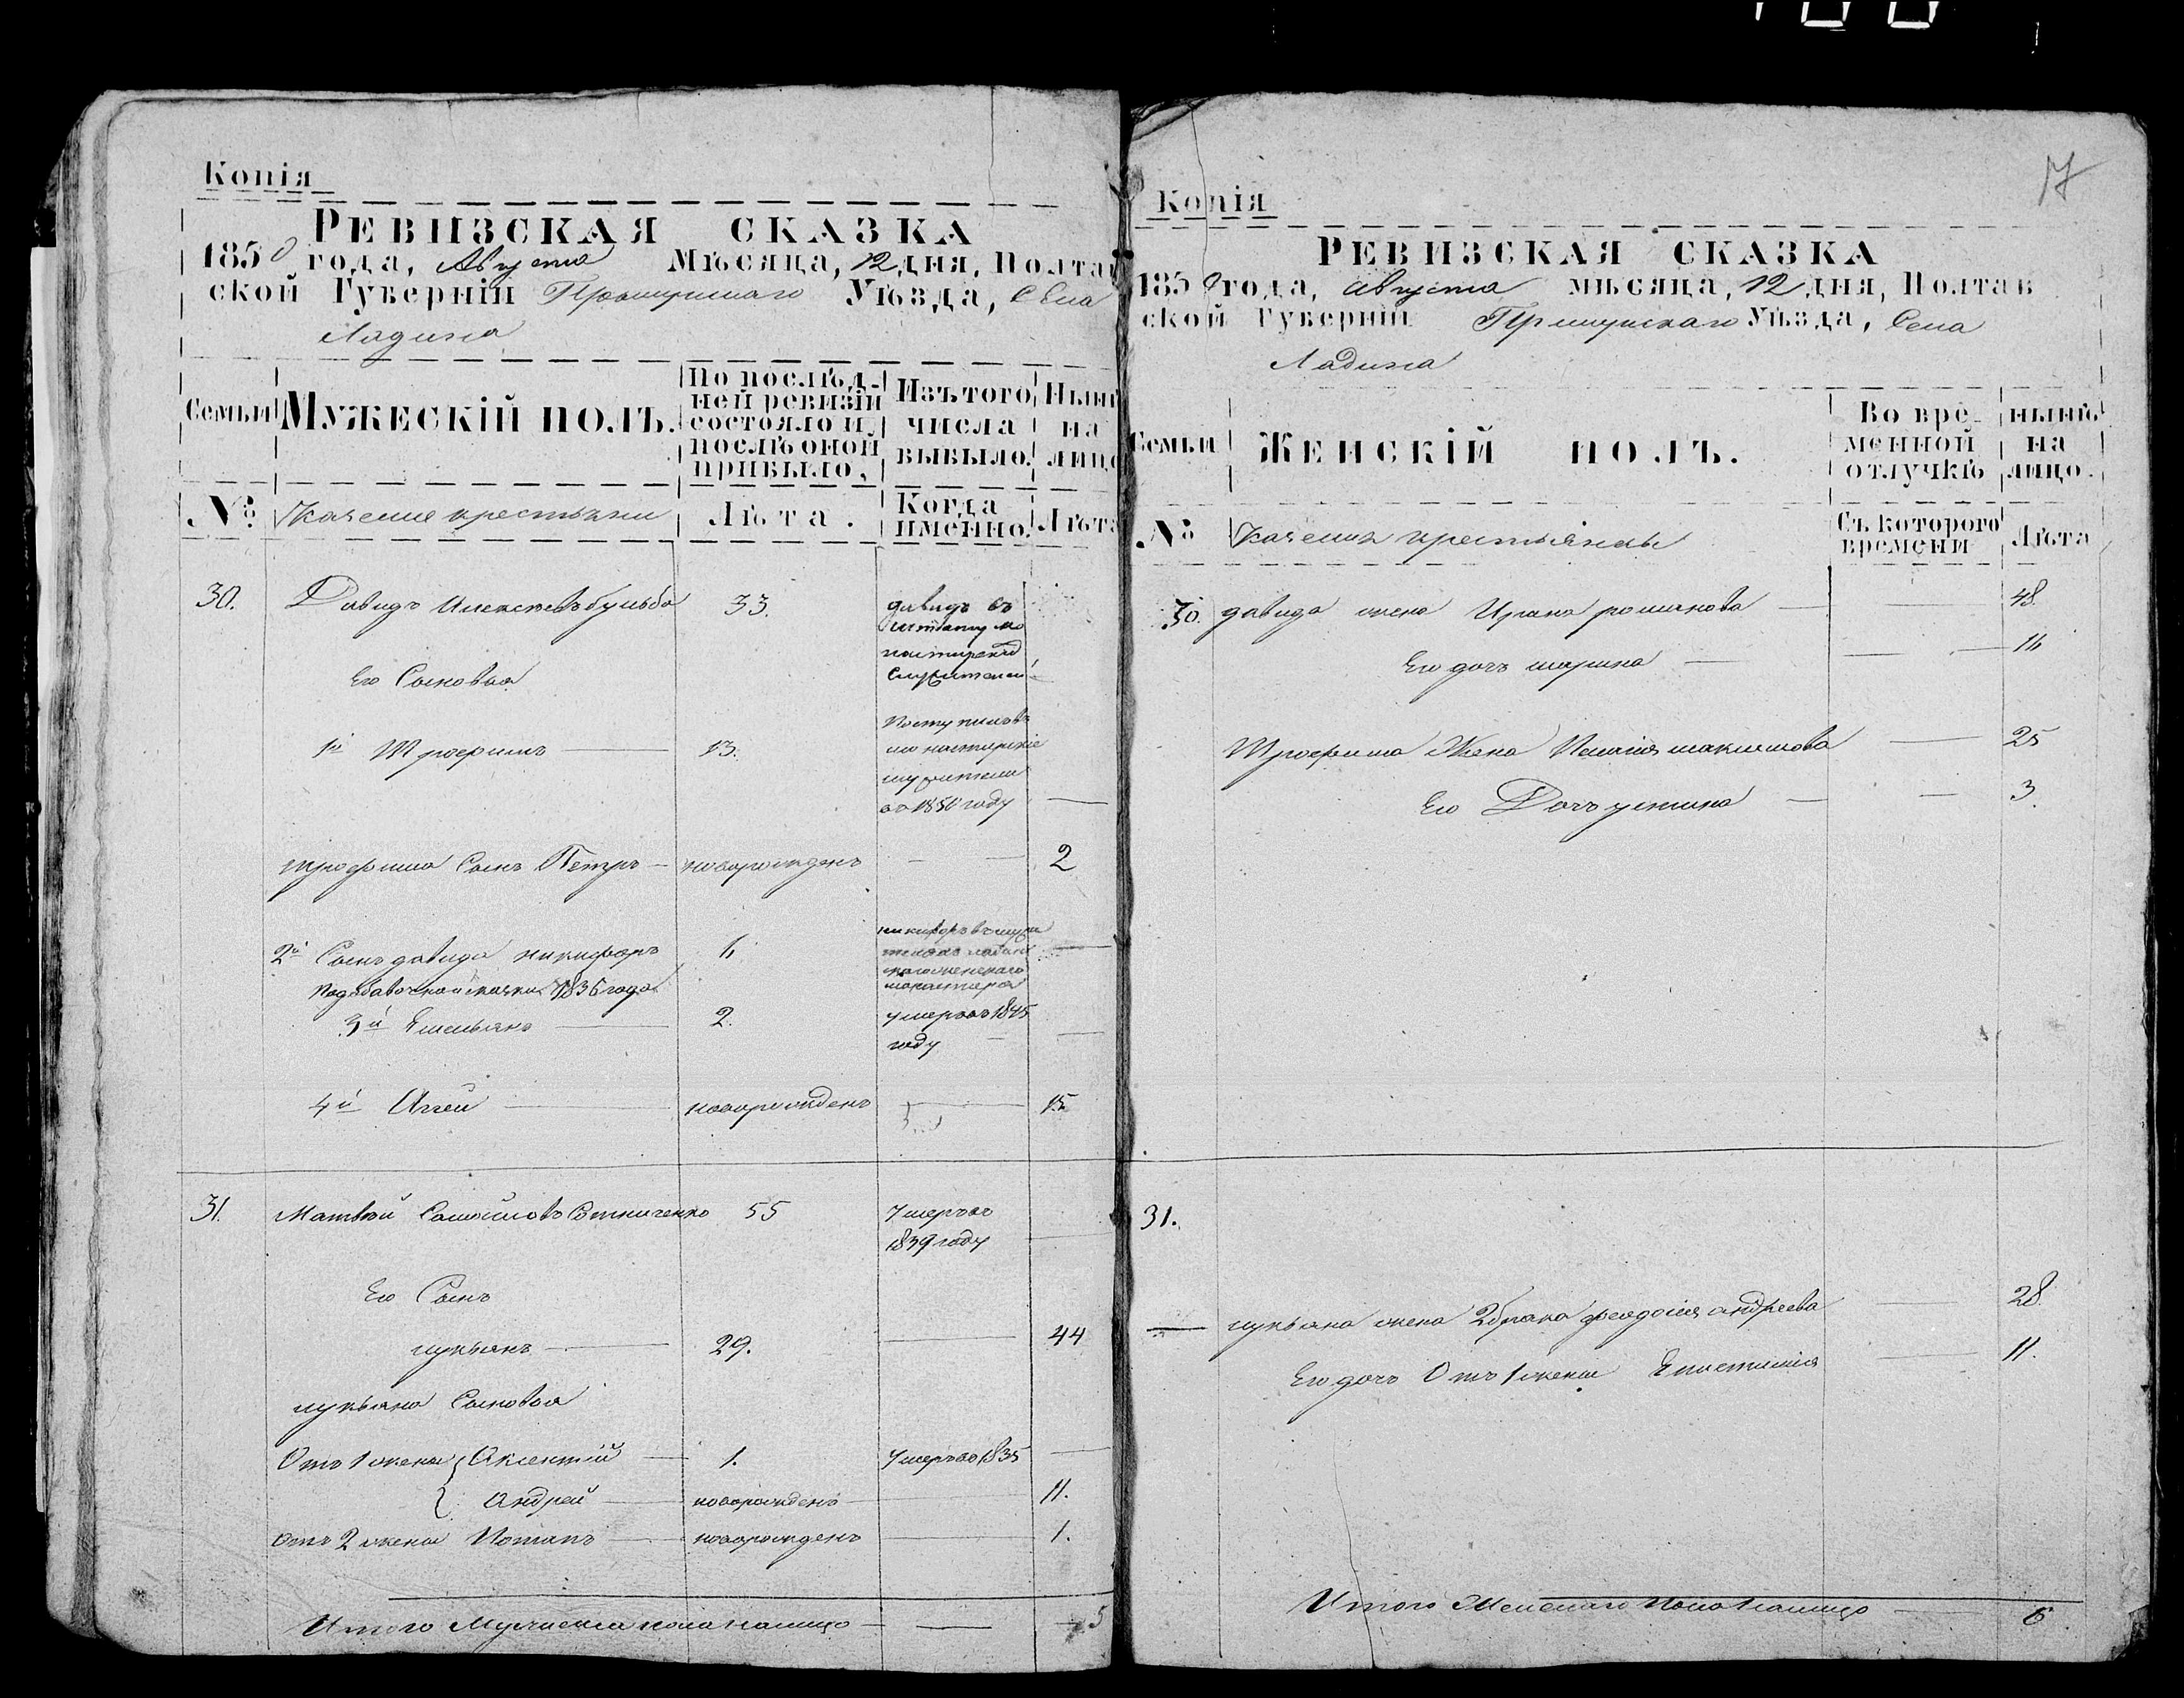 Копія
РЕВИЗСКАЯ СКАЗКА
1850 года, Августа Мѣсяца, 12 дня, Полтав
ской Губерніи Прилуцкаго Уѣзда, Села
Ладина
Семьи
МУЖЕСКІЙ ПОЛЪ.
По послѣд-
ней ревизіи
состояло и
послѣ оной
прибыло,
Изъ того
числа
выбыло.
Нынѣ
на
лицо
№
Казенные крестьяне
Лѣта.
Когда
именно.
Лѣта
30. Давидъ Алексѣевъ бульба 33. давидъ въ
штатну мо
настирскій
служители
Его Сыновья
1й Трофимъ 13. поступилъ въ
монастирскіе
служители
въ 1850 году
трофима Сынъ Петръ новорожденъ 2
2й Сынъ давида никифоръ никифоръ въ служи
монастиря
Подобавочной сказки 1836 года
3й Емельянъ 2. умеръ въ 1845
году
4й Агей новорожденъ 15
31. Матвѣй Самойловъ Сотниченко 55 Умеръ въ
1839 году
Его Сынъ
лукьянъ 29. 44
лукьяна Сыновья
Отъ 1 жены Аксентій 1. Умеръ въ 1835
Андрей новорожденъ 11.
отъ 2 жены Потапъ новорожденъ 1.
Итого Мужеска пола налицо 5
17
Копія
РЕВИЗСКАЯ СКАЗКА
1850 года, Августа мѣсяца, 12 дня, Полтав
ской Губерніи Прилуцкаго Уѣзда, Села
Ладина
Семьи
ЖЕНСКІЙ ПОЛЪ.
Во вре-
менной
отлучкѣ
нынѣ
на
лицо.
№
Казенныя крестьянки
Съ котораго
времени
Лѣта
30. давида жена Ирина романова 48.
Его дочь марина 16
Трофима Жена Пелагія максимова 25
Его Дочь устина 3.
31.
лукьяна жена 2 брака феодосія андреева 28.
Его дочь Отъ 1 жены Епистимія 11.
Итого Женскаго Пола налицо 6